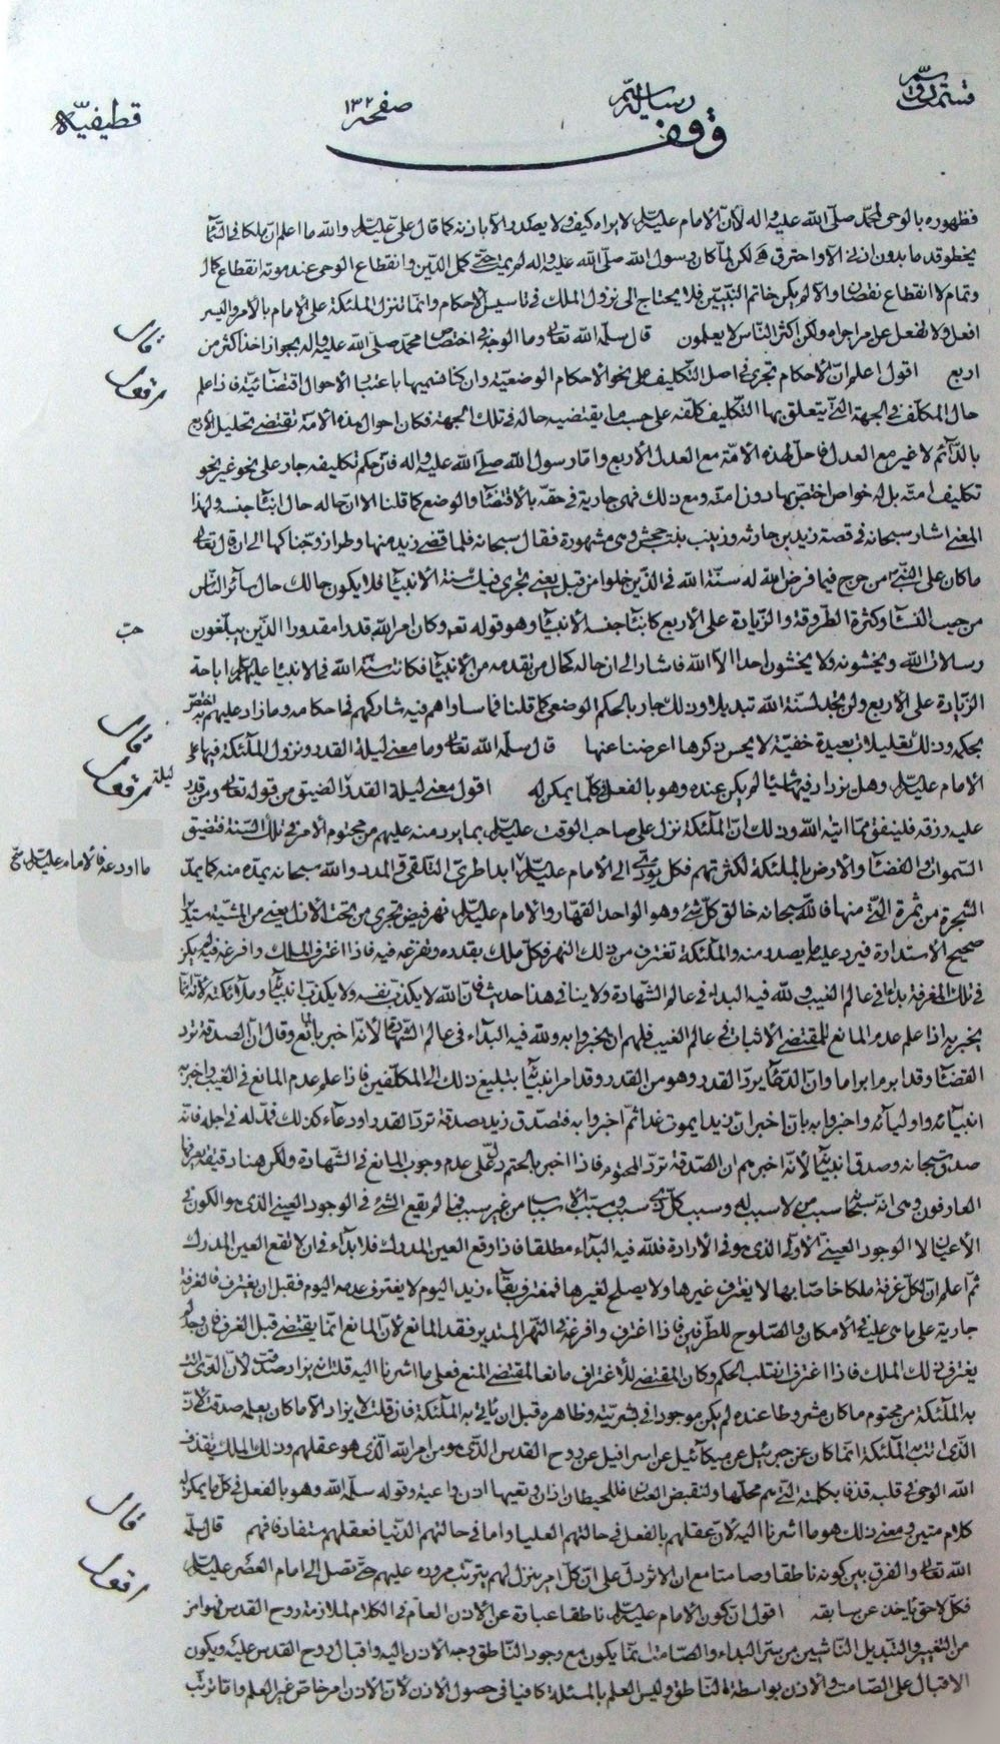 قسمت دويم
رسالة
صفحه ١٣٢
قطيفيه
وقف
فظهوره بالوحى لمحمد صلى الله عليه واله لأن الامام عليه السلام لا يراه كيف ولا يصدر الا باذنه كما قال على عليه السلام والله ما اعلم ان ملكا فى السماء
يخطو قدما بدون اذنى الا واحترق هى لكن لما كان رسول الله صلى الله عليه واله لم يمت حتى كمل الدين وانقطاع الوحى عند موته انقطاع كمال
وتمام لا انقطاع نقصان والا لم يكن خاتم النبيين فلا يحتاج الى نزول الملك فى تاسيس الاحكام وانما تنزل الملئكة على الامام بالامر واليسر
افعل ولا تفعل عن امر اجراه ولكن اكثر الناس لا يعلمون قال سلمه الله تعالى وما الوجه فى اختصاص محمد صلى الله عليه واله بجواز اخذ اكثر من
قال
اربع اقول اعلم ان الاحكام تجرى فى اصل التكليف على نحو الاحكام الوضعية وان كنا نسميها باعتبار الاحوال اقتضائية فاذا علم
اقول
حال المكلف فى الجهة التى يتعلق بها التكليف كلفه على حسب ما يقتضيه حاله فى تلك الجهة فكان احوال هذه الامة تقتضى تحليل الاربع
بالدائم لا غير مع العدل فاحل لهذه الامة مع العدل الاربع واما رسول الله صلى الله عليه واله فان حكم تكليفه جار على نحو غير نحو
تكليف امته بل له خواص اختص بها دون امته ومع ذلك فهى جارية فى حقه بالاقتضاء والوضع كما قلنا الا ان حاله حال ابناء جنسه ولهذا
المعنى اشار سبحانه فى قصة زيد بن حارثه وزينب بنت جحش وهى مشهورة فقال سبحانه فلما قضى زيد منها وطرا زوجناكها الى ان قال تعالى
ما كان على النبى من حرج فيما فرض الله له سنة الله فى الذين خلوا من قبل يعنى تجرى فيك سنة الانبياء فلا يكون حالك حال سائر الناس
من حيث النساء وكثرة الطروقة والزيادة على الاربع كابناء جنسه الانبياء وهو قوله تعالى وكان امر الله قدرا مقدورا الذين يبلغون
رسالات الله ويخشونه ولا يخشون احدا الا الله فاشار الى ان حاله كحال من تقدمه من الانبياء فكانت سنة الله فى الانبياء عليهم السلام اباحة
الزيادة على الاربع ولن تجد لسنة الله تبديلا وذلك جار بالحكم الوضعى كما قلنا فما ساواهم فيه شاركهم فى احكامه وما زاد عليهم اختص
بحكمه وذلك تعليلات بعيدة خفية لا يحسن ذكرها اعرضنا عنها قال سلمه الله تعالى وما معنى ليلة القدر ونزول الملئكة فيها على
قال
الامام عليه السلام وهل يزداد فيها شيئا لم يكن عنده وهو بالفعل فى كلما يمكن له اقول معنى ليلة القدر الضيق من قوله تعالى ومن قدر
اقول
عليه رزقه فلينفق مما اتيه الله وذلك ان الملئكة تنزل على صاحب الوقت عليه السلام بما يرد منه عليهم من محتوم الامر فى تلك السنة فتضيق
السموات والفضاء والارض بالملئكة لكثرتهم فكل يؤدى الى الامام عليه السلام ابدا طرى التلقى والمدد والله سبحانه يمده منه كما يمد
ما اودعه فالامام عليه السلام
الشجرة من ثمرة التى منها فالله سبحانه خالق كل شئ وهو الواحد القهار والامام عليه السلام نهر فيض يجرى من تحت الازل يعنى من المشية مستديرا
صحيح الاستدارة فيرد عليه ما يصدر منه والملئكة تغترف من ذلك النهر فكل ملك بقدره وتفرغه فيه فاذا اغترف الملك وافرغ فيه لم يكن
فى تلك المغرفة بداء فى عالم الغيب ولله فيه البداء فى عالم الشهادة ولا ينافى هذا حديث فان الله لا يكذب نفسه ولا يكذب انبياءه وملائكته لانه انما
يخبر به اذا علم عدم المانع للمقتضى الاثبات فى عالم الغيب فلهم ان يخبروا به ولله فيه البداء فى عالم الشهادة لانه اخبر بالمانع وقال ان الصدقة ترد
القضاء وقد ابرم ابراما وان الدعاء يرد القدر وهو من القدر وقد امر انبيائه بتبليغ ذلك الى المكلفين فاذا علم عدم المانع فى الغيب واخبر به
انبيائه واوليائه واخبروا به بان اخبر ان زيدا يموت غدا ثم اخبروا به فتصدق زيد بصدقة ترد القدر او دعاء كذلك فمد له فى اجله فانه
صدق سبحانه وصدق انبيائه لانه اخبرهم ان الصدقة ترد المحتوم فاذا اخبر بالحتم دل على عدم وجوب المانع فى الشهادة ولكن هنا دقيقة يعرفها
العارفون وهى انه سبحانه سبب من لا سبب له وسبب كل ذى سبب ومسبب الاسباب من غير سبب فما لم يقع الشئ فى الوجود العينى الذى هو الكون فى
الاعيان لا الوجود العينى الاولى الذى هو فى الارادة فلله فيه البداء مطلقا فاذا وقع العين المدرك فلا بداء فى ان لا تقع العين المدرك
ثم اعلم ان لكل غرفة ملكا خاصا بها لا يغترف غيرها ولا يصلح لغيرها فمغترف بقاء زيد اليوم لا يغترف عدمه اليوم فقبل ان يغترف فالغرفة
جارية على ما هى عليه فى الامكان والصلوح للطرفين فاذا اغترف وافرغه فى النهر المستدير فقد المانع لان المانع انما يقتضى قبل الغرف فان وجد لم
يغترف ذلك الملك فاذا اغترف انقلب الحكم وكان المقتضى للاغتراف مانعا لمقتضى المنع فعلى ما اشرنا اليه قلت انه يزداد صدقت لان الذى اتت
به الملئكة من محتوم ما كان مشروطا عنده لم يكن موجودا فى بشريته وظاهره قبل ان تاتى به الملئكة فان قلت لا يزداد الا ما كان يعلم صدقت لان
الذى اتت به الملئكة انما كان عن جبرئيل عن ميكائيل عن اسرافيل عن روح القدس الذى هو من امر الله الذى هو عقلهم وذلك الملك يقذف
الله الوحى فى قلبه قذفا بكلمته التى هم محلها ولتقبض العنان فللحيطان اذان وتعيها اذن واعية وقوله سلمه الله وهو بالفعل فى كل ما يمكن له
كلام متين ومعنى ذلك هو ما اشرنا اليه لان عقلهم بالفعل فى حالتهم العليا واما فى حالتهم الدنيا فعقلهم مستفاد فافهم قال سلمه
قال
الله تعالى والفرق بين كونه ناطقا وصامتا مع ان الاثر دل على ان كل امر ينزل لهم يترتب مروره عليهم حتى تصل الى امام العصر عليه السلام
اقول
فكل لاحق ياخذ عن سابقه اقول ان كون الامام عليه السلام ناطقا عبارة عن الاذن العام فى الكلام لملازمة روح القدس
من التغيير والتبديل الناشيين من سر البداء والصامت بما يكون مع وجود الناطق وجه الاذن اليه واقبال روح القدس عليه ويكون
الاقبال على الصامت والاذن بواسطة الناطق وليس العلم بالمسئلة كافيا فى حصول الاذن لان الاذن امر خاص غير العلم واما ترتب